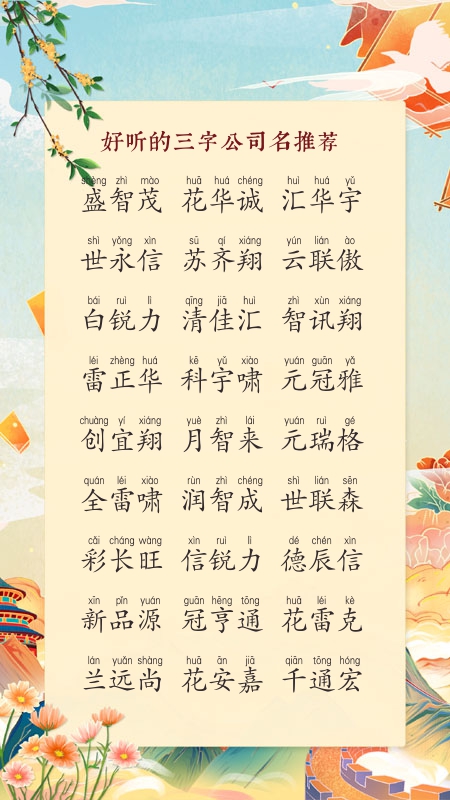 好听的三字公司名推荐
shèng zhì mào huā huá chéng huì huá yǔ
盛智茂 花华诚 汇华宇
shì yǒng xìn sū qí xiáng yún lián ào
世永信 苏齐翔 云联傲
bái ruì lì qīng jiā huì zhì xùn xiáng
白锐力 清佳汇 智讯翔
léi zhèng huá kē yǔ xiào yuán guān yǎ
雷正华 科宇啸 元冠雅
chuàng yí xiáng yuè zhì lái yuán ruì gé
创宜翔 月智来 元瑞格
quán léi xiào rùn zhì chéng shì lián sēn
全雷啸 润智成 世联森
cǎi cháng wàng xìn ruì lì dé chén xìn
彩长旺 信锐力 德辰信
xīn pǐn yuán guān hēng tōng huā léi kè
新品源 冠亨通 花雷克
lán yuǎn shàng huā ān jiā qiān tōng hóng
兰远尚 花安嘉 千通宏